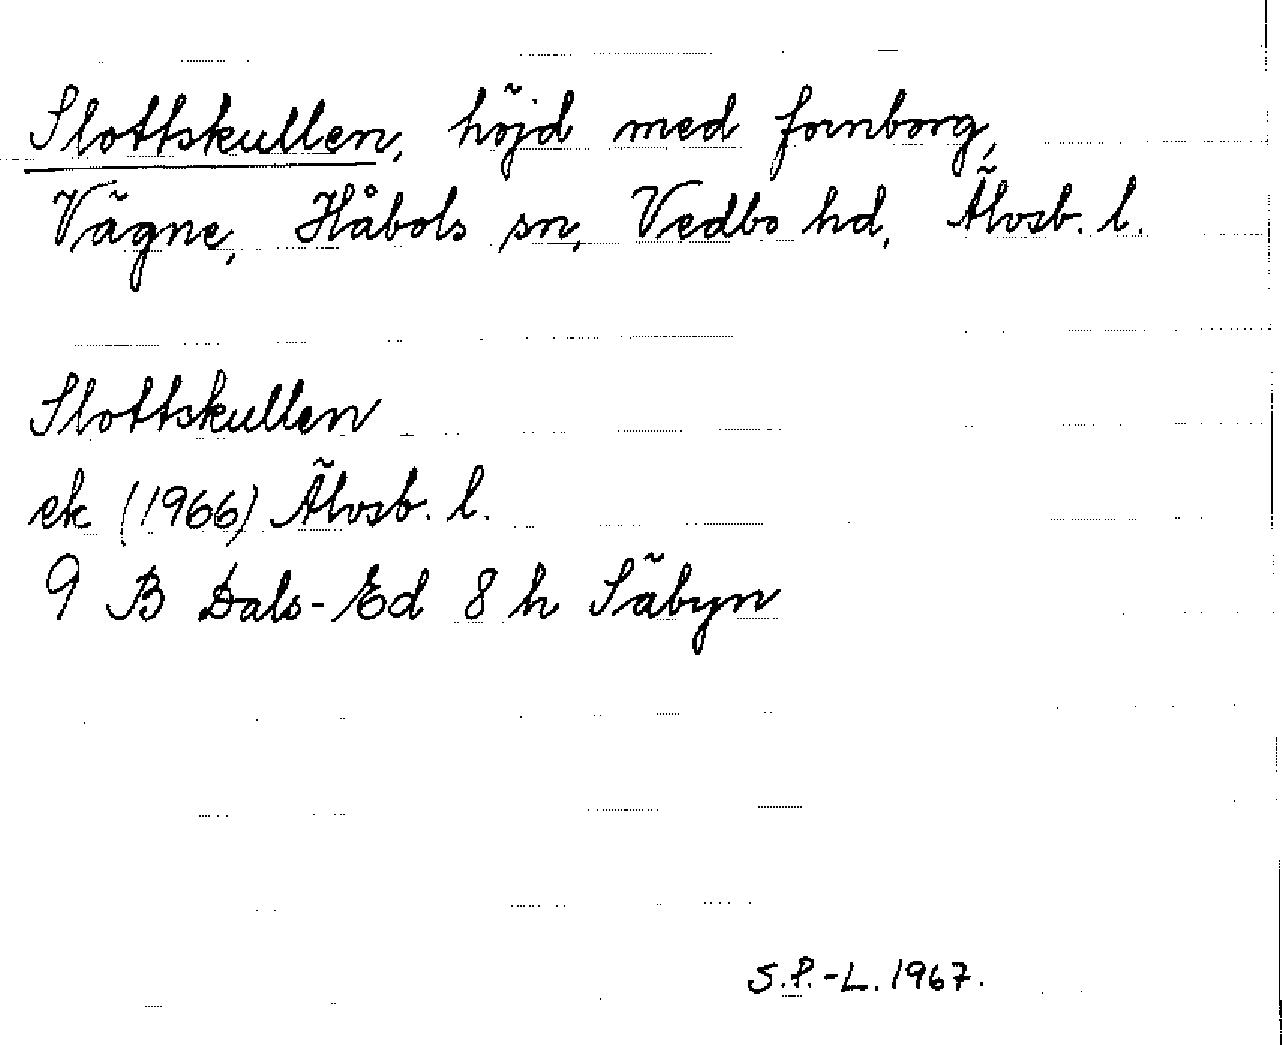 Slottskullen, höjd med fornborg,
Vägne, Håbols sn, Vedbo hd, Älvsb. l.
Slottskullen
ek (1966) Älvsb. l.
9 B Dals-Ed 8 h Säbyn
S.P.-L. 1967.